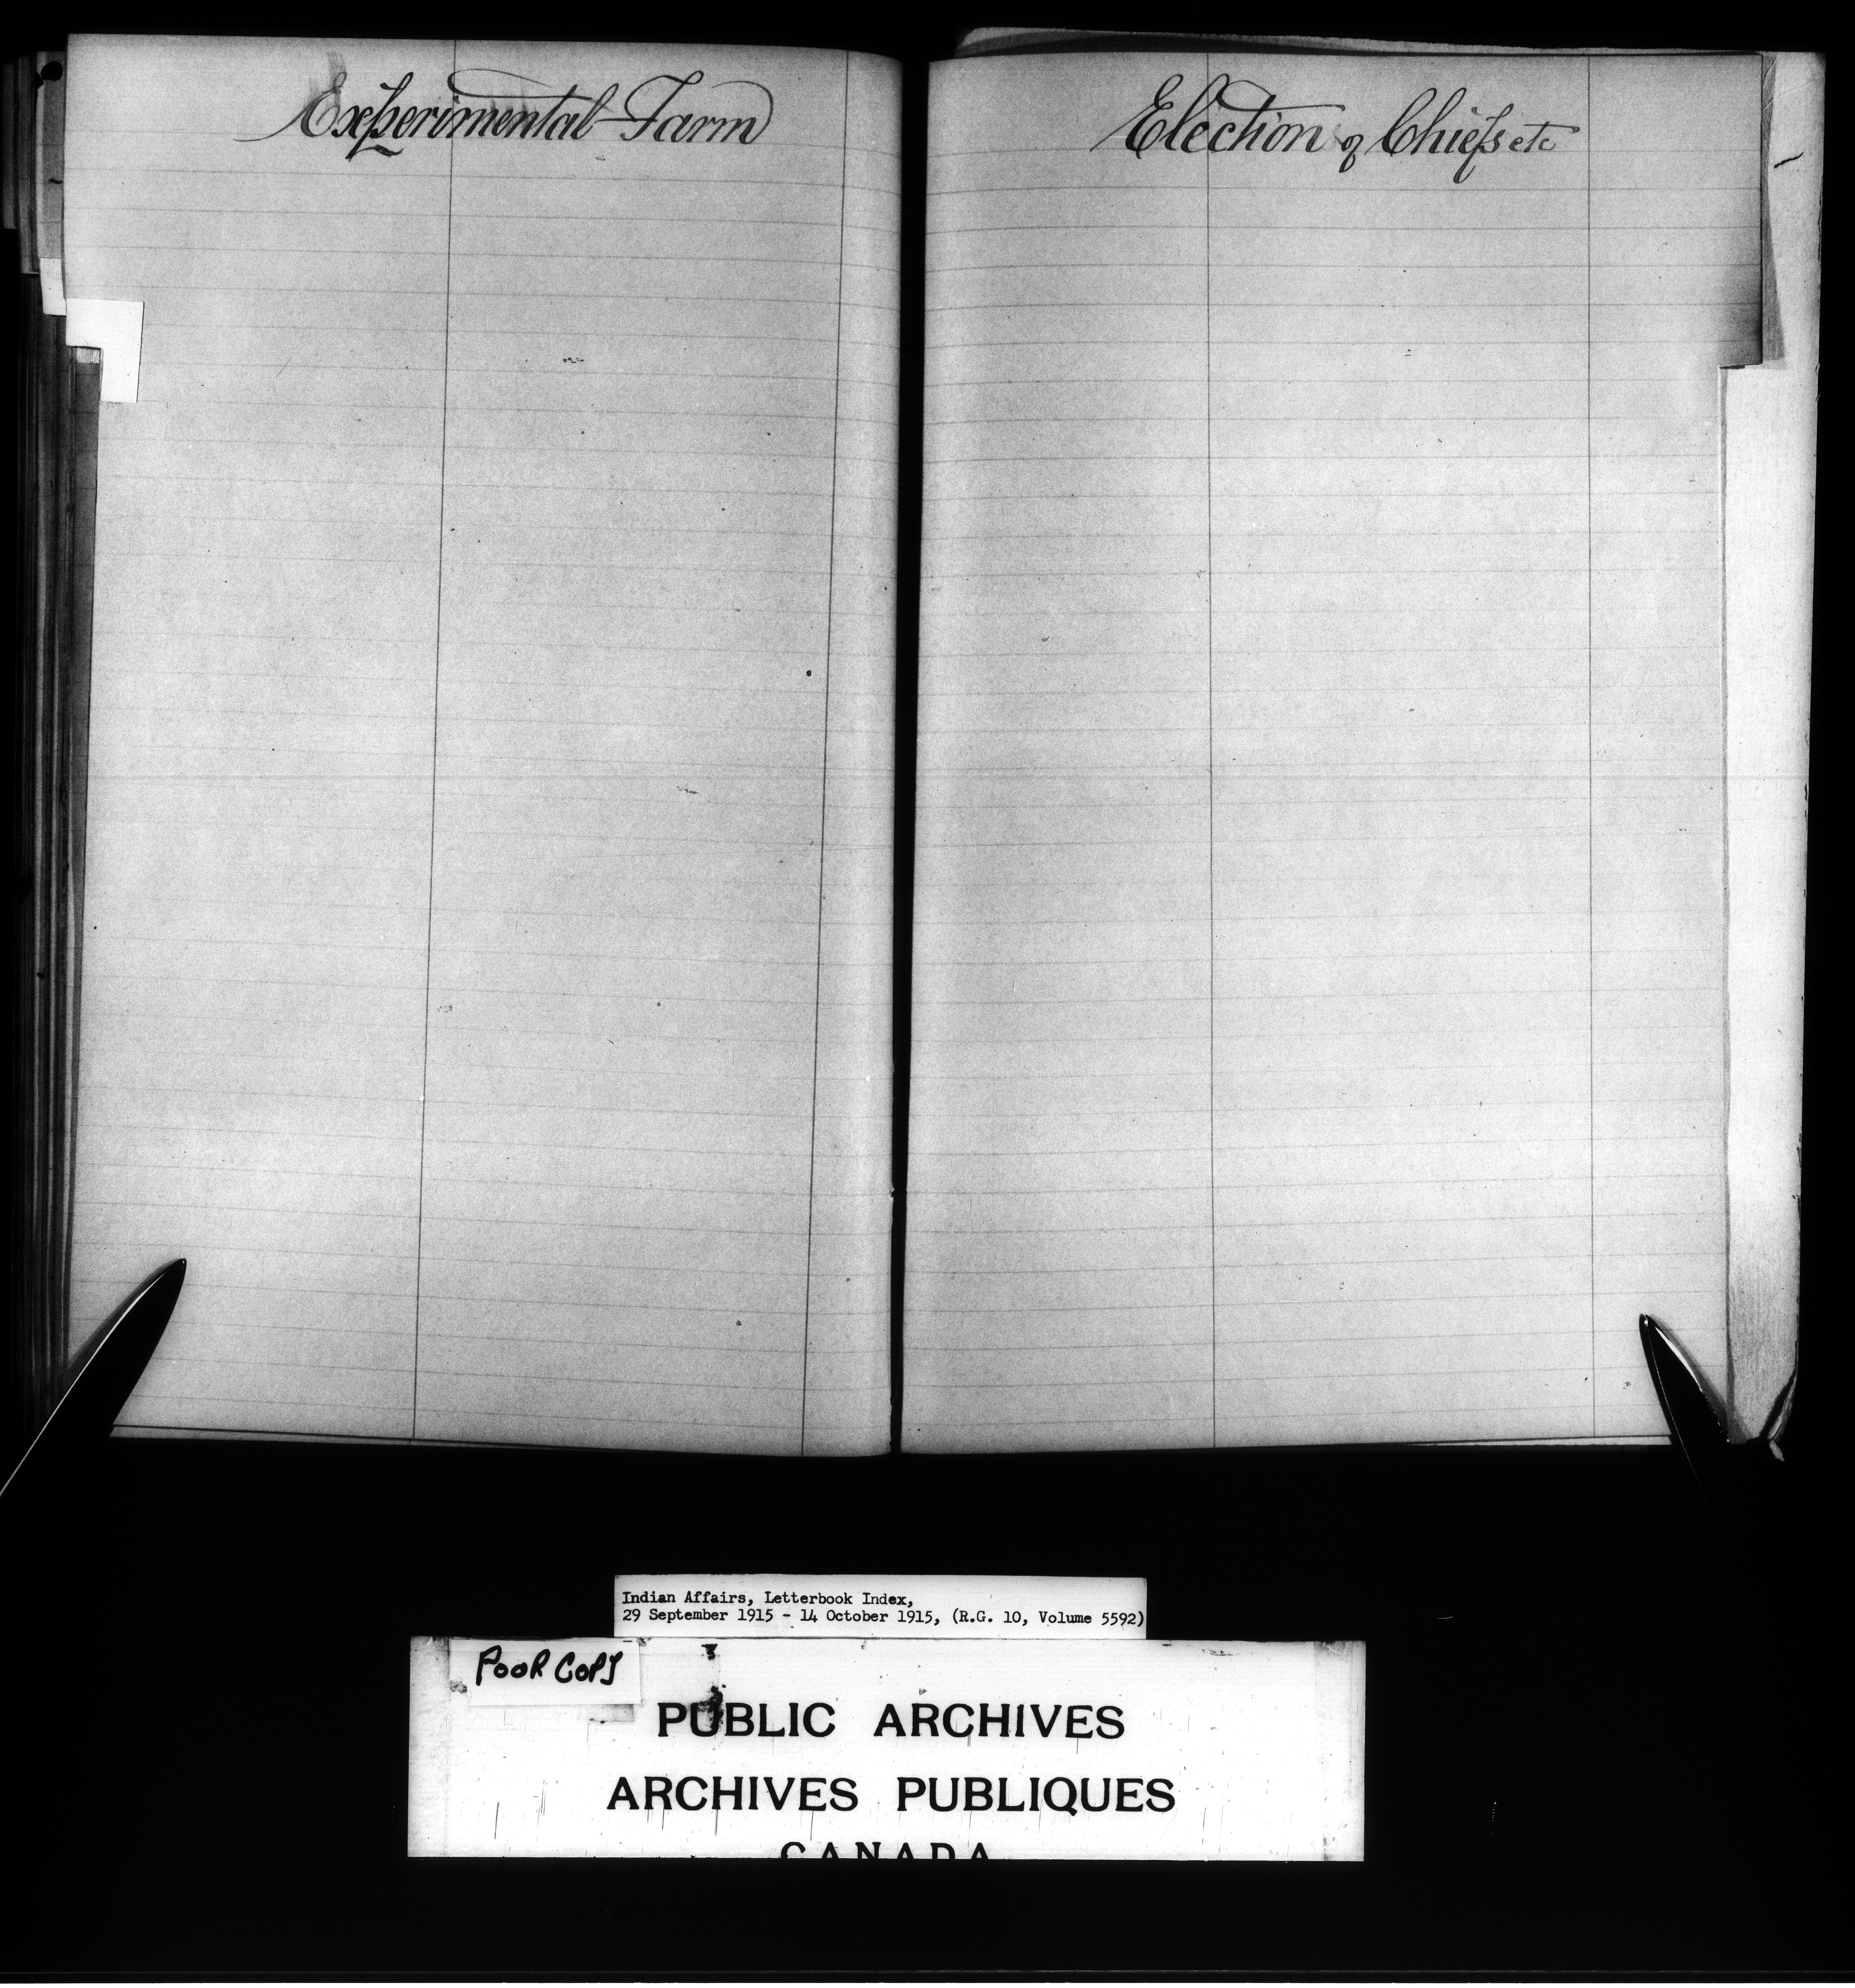 Experimental Farm
Election of Chiefs etc
Indian Affairs, Letterbook Index,
29 September 1915 - 14 October 1915, (R.G. 10, Volume 5592)
POOR COPY
PUBLIC ARCHIVES
ARCHIVES PUBLIQUES
CANADA